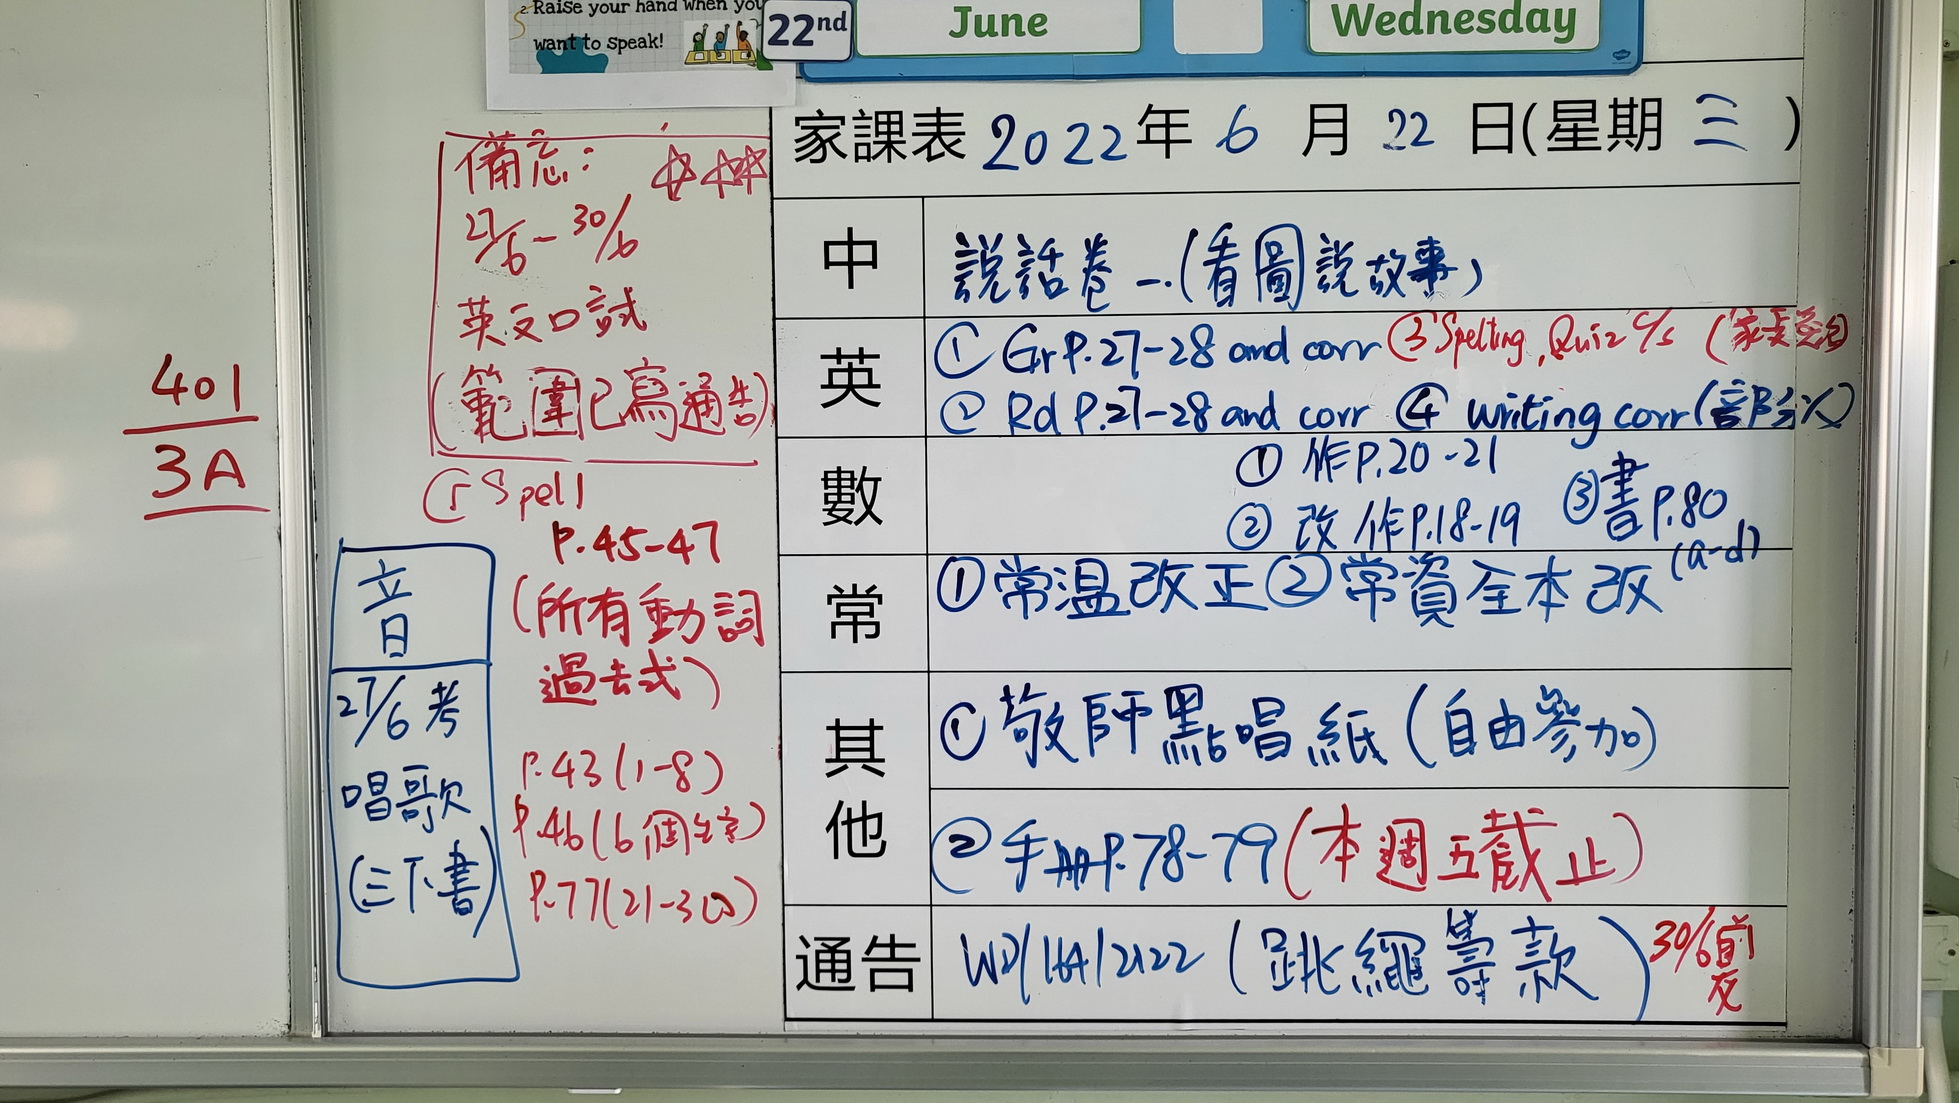 2. Raise your hand when you
want to speak!
22nd
June
Wednesday
家課表 2022年 6 月 22 日(星期 三 )
中
說話卷一.(看圖說故事)
英
① Gr P.27-28 and corr ③ Spelling, Quiz c/s (家長
② Rd P.27-28 and corr ④ Writing corr (部分人)
數
① 作P.20-21
② 改作P.18-19 ③書P.80
(a-d)
常
①常溫改正②常資全本改
其他
①敬師點唱紙(自由參加)
②手冊P.78-79(本週五截止)
通告
WD/164/2122 (跳繩籌款) 30/6前
交
備忘:
27/6-30/6
英文口試
(範圍已寫通告)
⑤ Spell
P.45-47
(所有動詞
過去式)
P.43(1-8)
P.46(6個
P.77(21-30)
音
27/6 考
唱歌
(三下書)
401
3A